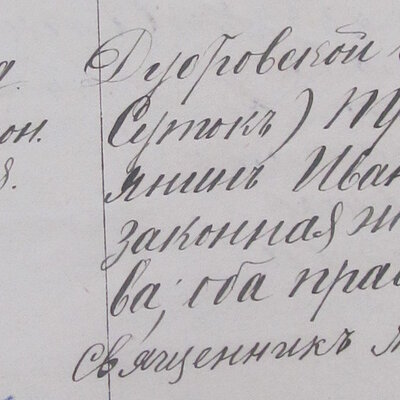 Дубровской
Сутокъ)
янинъ Иван
законная ж
ва, оба прав
священникъ
он.